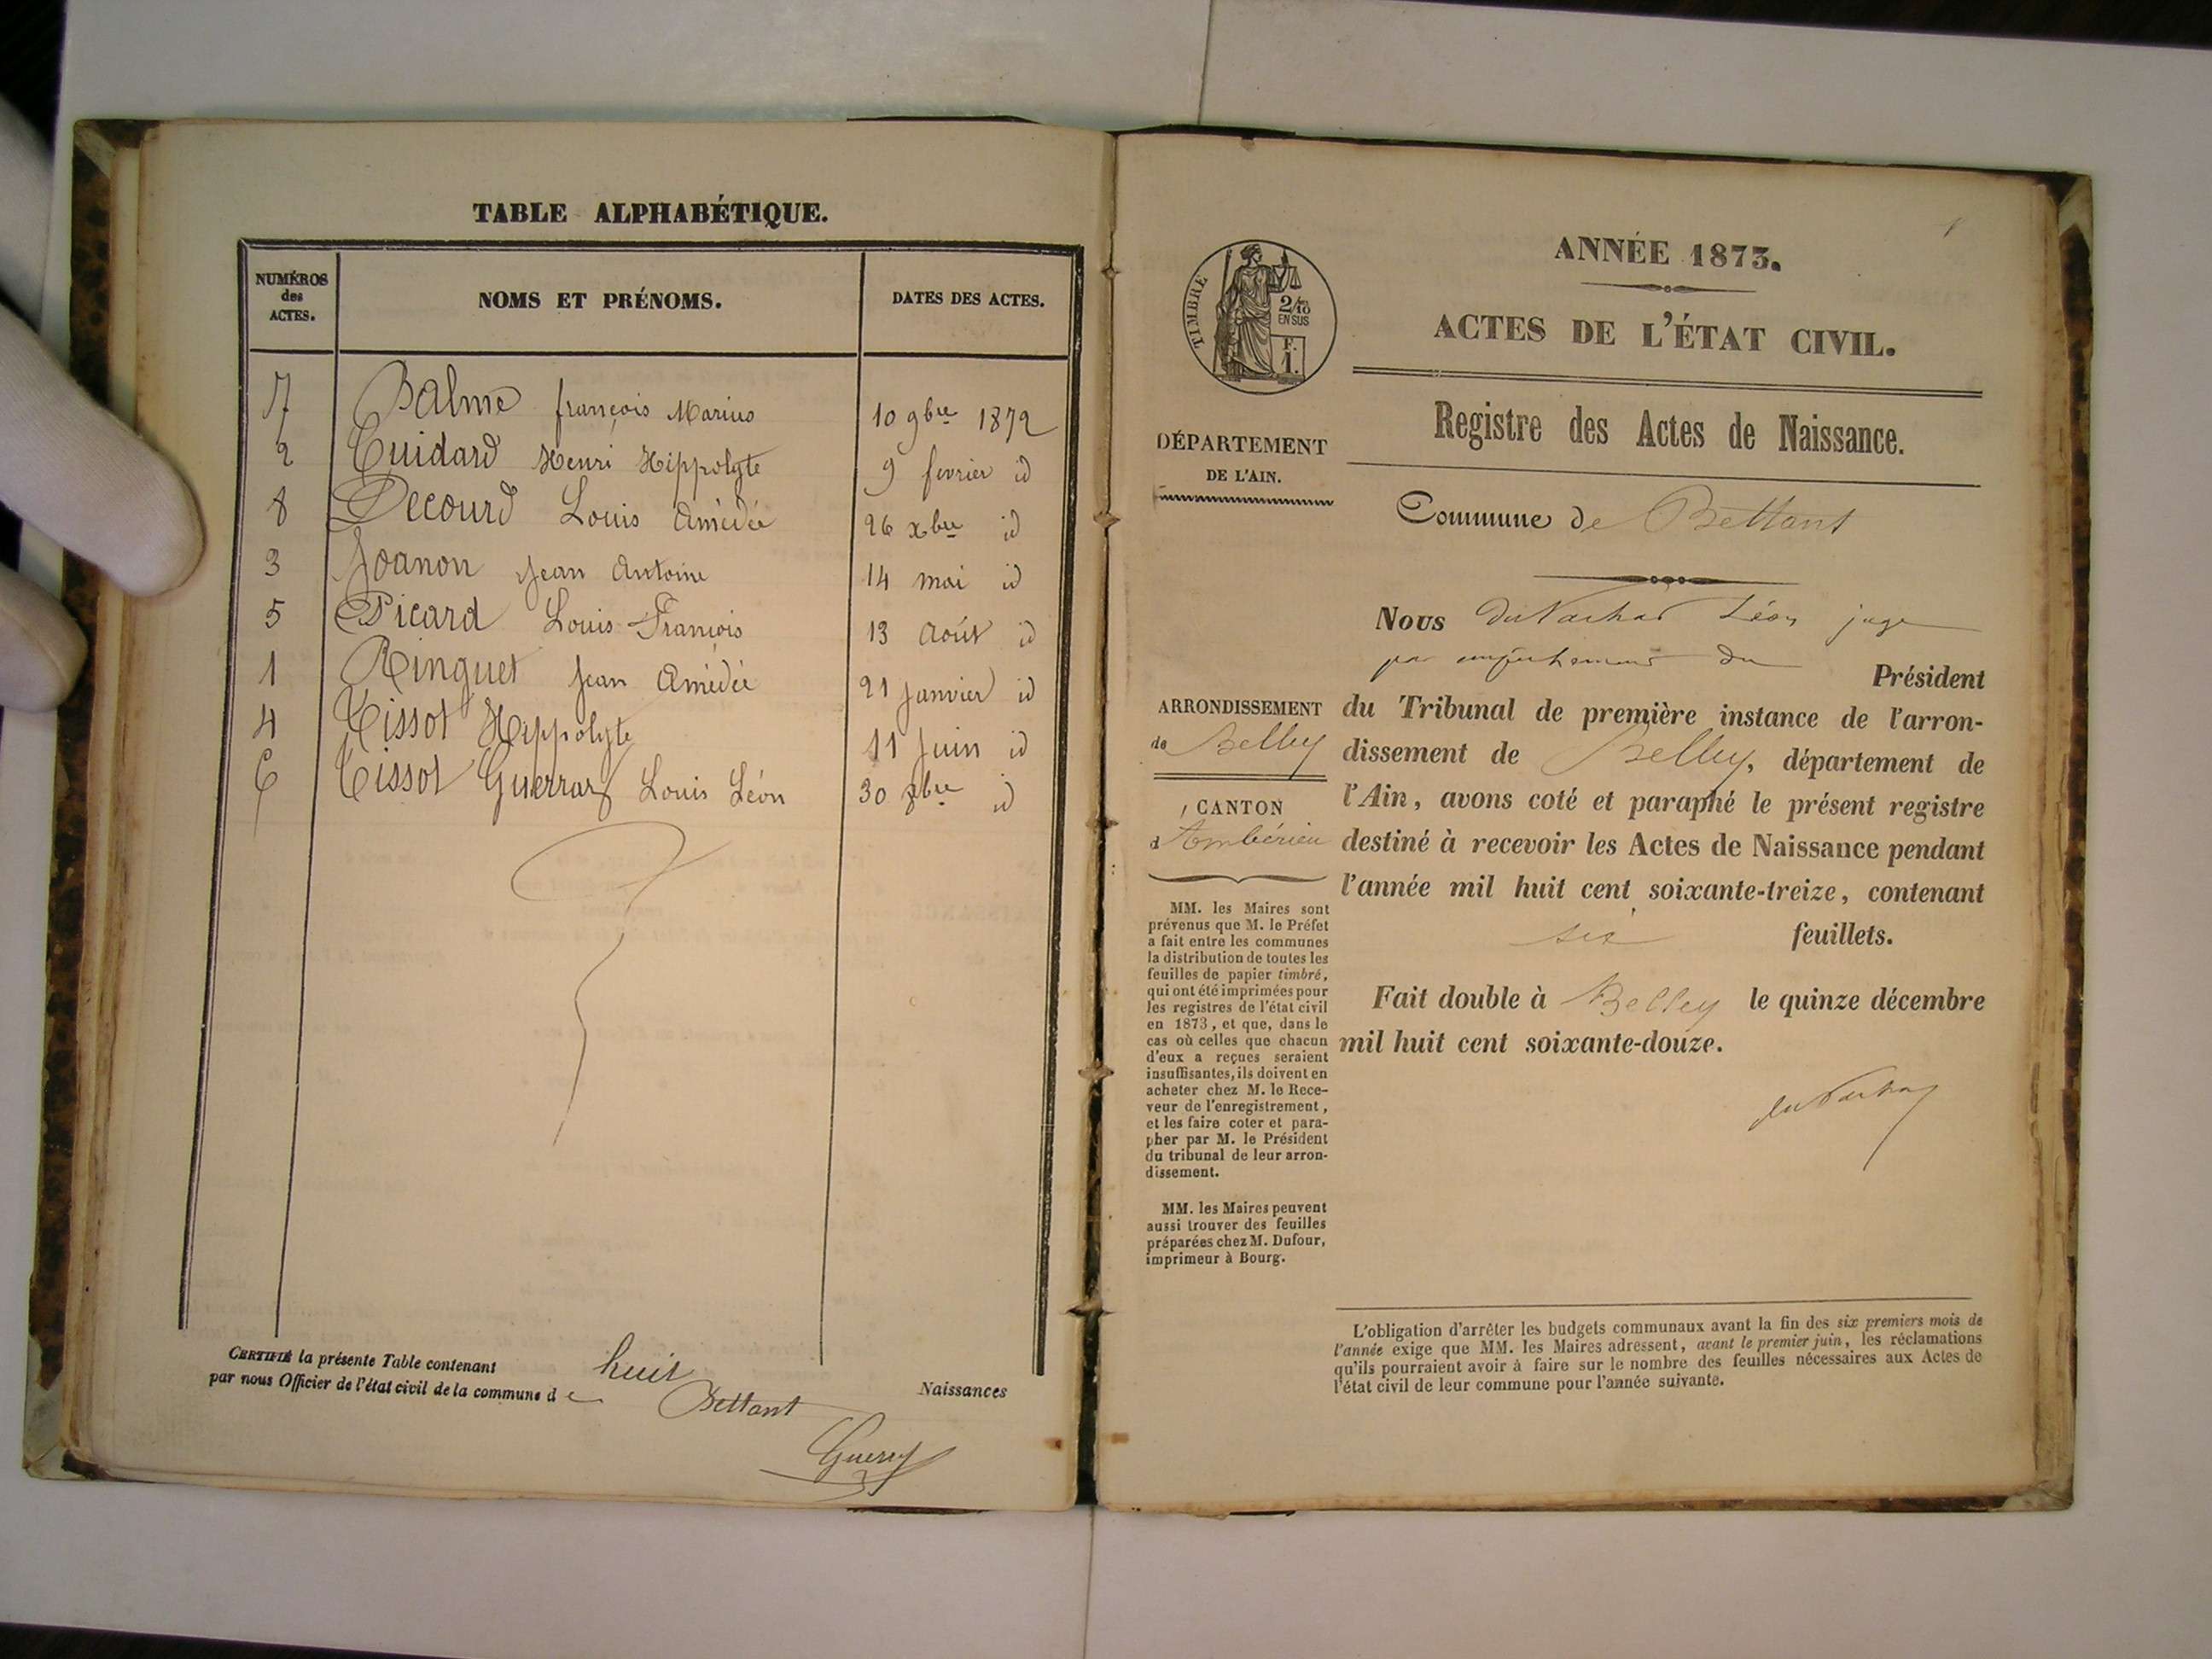 TABLE ALPHABÉTIQUE.
NUMÉROS des ACTES.
NOMS ET PRÉNOMS.
DATES DES ACTES.
7 Balme françois Marius 10 9bre 1872
2 Cuidard Henri Hippolyte 9 fevrier id
8 Decourd Louis Amédée 26 xbre id
3 Joanon Jean Antoine 14 mai id
5 Picard Louis François 13 Août id
1 Ringuet Jean Amédée 21 Janvier id
4 Tissot Hippolyte 11 Juin id
6 Tissot Louis Léon 30 id
CERTIFIÉ la présente Table contenant huit Naissances
par nous Officier de l'état civil de la commune de Bettant
1
TIMBRE
2/10
EN SUS
F.
1.
ANNÉE 1873.
ACTES DE L'ÉTAT CIVIL.
Registre des Actes de Naissance.
DÉPARTEMENT
DE L'AIN.
Commune de Bettant
Nous Léon juge
par empêchement du Président
du Tribunal de première instance de l'arron-
dissement de Belley, département de
l'Ain, avons coté et paraphé le présent registre
destiné à recevoir les Actes de Naissance pendant
l'année mil huit cent soixante-treize, contenant
six feuillets.
Fait double à Belley le quinze décembre
mil huit cent soixante-douze.
ARRONDISSEMENT
de Belley
CANTON
d'Ambérieu
MM. les Maires sont
prévenus que M. le Préfet
a fait entre les communes
la distribution de toutes les
feuilles de papier timbré,
qui ont été imprimées pour
les registres de l'état civil
en 1873, et que, dans le
cas où celles que chacun
d'eux a reçues seraient
insuffisantes, ils doivent en
acheter chez M. le Rece-
veur de l'enregistrement,
et les faire coter et para-
pher par M. le Président
du tribunal de leur arron-
dissement.
MM. les Maires peuvent
aussi trouver des feuilles
préparées chez M. Dufour,
imprimeur à Bourg.
L'obligation d'arrêter les budgets communaux avant la fin des six premiers mois de
l'année exige que MM. les Maires adressent, avant le premier juin, les réclamations
qu'ils pourraient avoir à faire sur le nombre des feuilles nécessaires aux Actes de
l'état civil de leur commune pour l'année suivante.